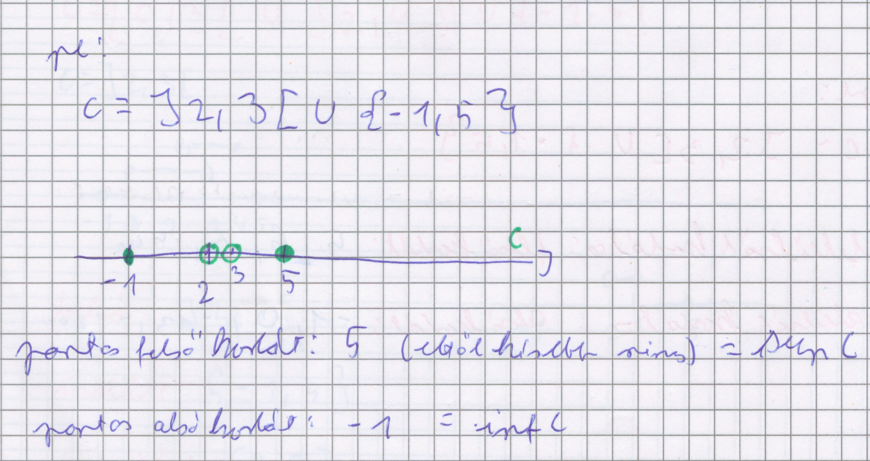 pl:
C = ]2, 3[ ∪ {-1, 5}
C
-1 2 3 5
pontos felső korlát: 5 (ettől kisebb nincs) = sup C
pontos alsó korlát: -1 = inf C